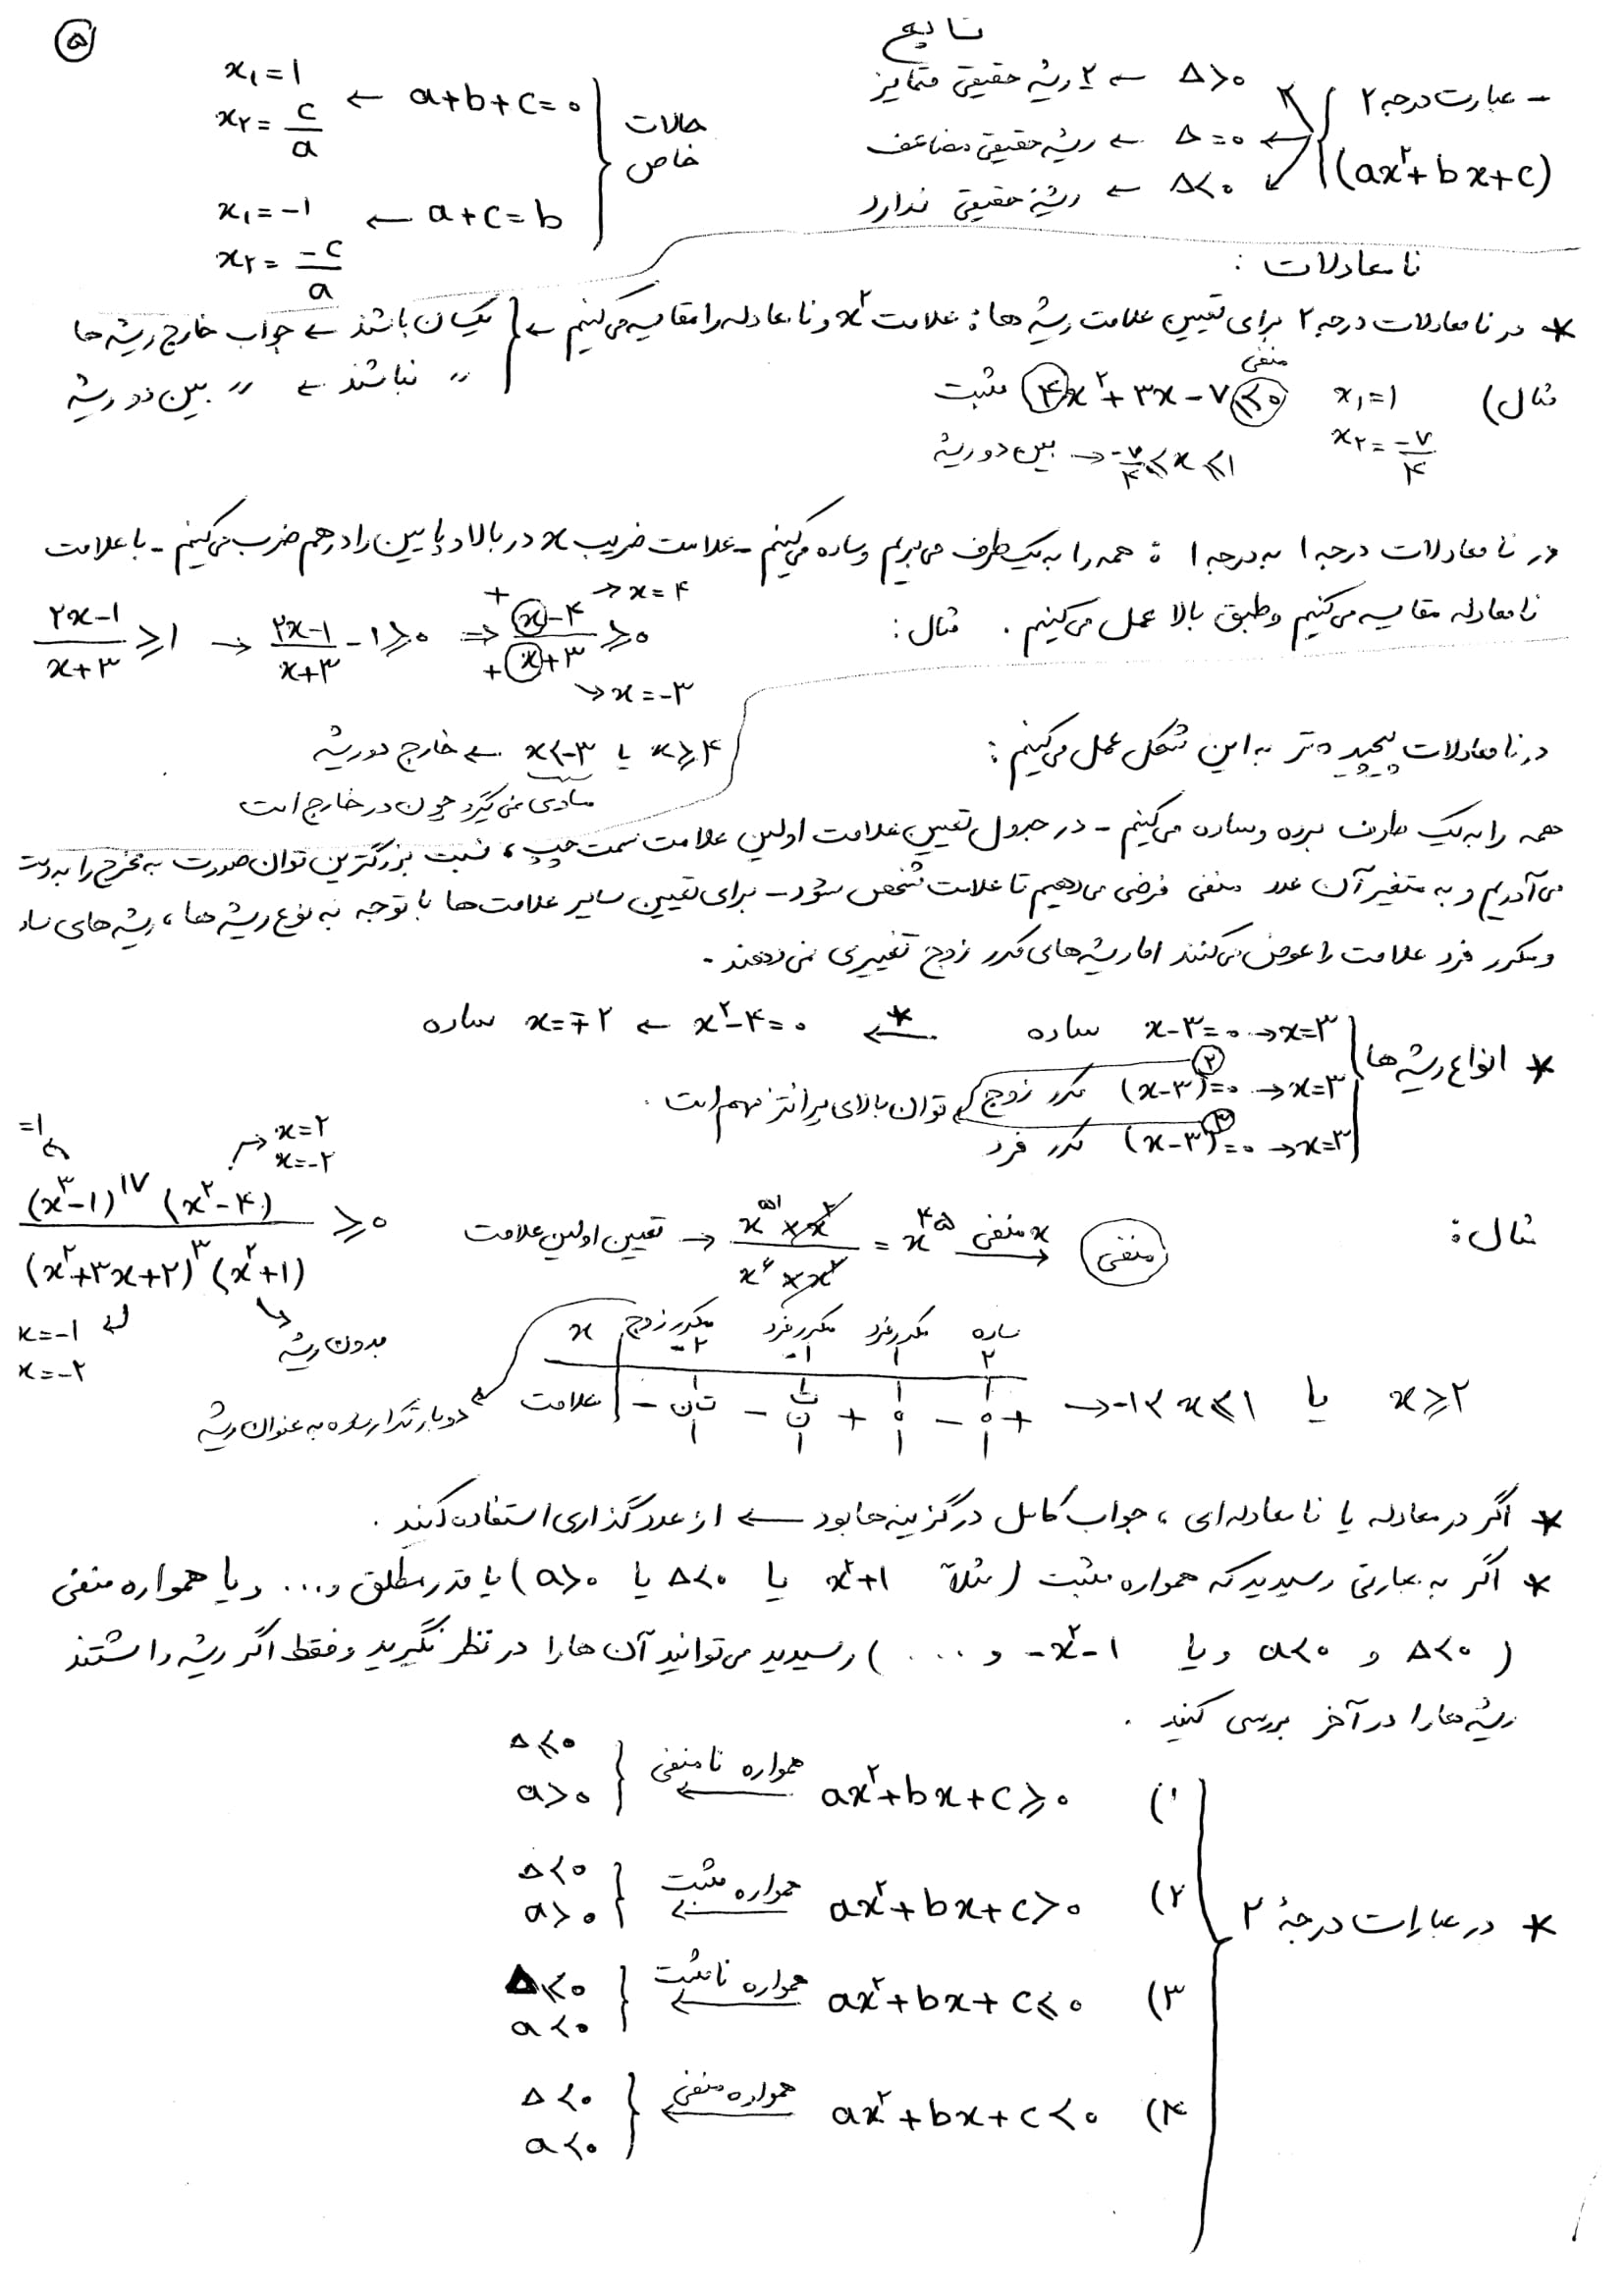 ۵
نتایج
- عبارت درجه ۲ (ax²+bx+c)
Δ>۰ ← ۲ ریشه حقیقی متمایز
Δ=۰ ← ریشه حقیقی مضاعف
Δ<۰ ← ریشهٔ حقیقی ندارد
حالات خاص
a+b+c=۰ → x₁=۱ x₂=c/a
a+c=b → x₁=-۱ x₂=-c/a
نامعادلات :
* در نامعادلات درجه ۲ برای تعیین علامت ریشه ها : علامت x² و نامعادله را مقایسه می‌کنیم ← یکسان باشند ← جواب خارج ریشه ها
〃 نباشند ← 〃 بین دو ریشه
مثال) x₁=۱ x₂=-۷/۴ ۴x²+۳x-۷≤۰ منفی مثبت
-۷/۴≤x≤۱ → بین دو ریشه
در نامعادلات درجه ۱ به درجه ۱ : همه را به یک طرف می‌بریم و ساده می‌کنیم - علامت ضریب x در بالا و پایین را در هم ضرب می‌کنیم - با علامت
نامعادله مقایسه می‌کنیم و طبق بالا عمل می‌کنیم . مثال :
(۲x-۱)/(x+۳) ≥ ۱ → (۲x-۱)/(x+۳) - ۱ ≥ ۰ ⇒ (x-۴)/(x+۳) ≥ ۰
+ → x=۴
+ → x=-۳
x≥۴ یا x<-۳ ← خارج دو ریشه
مساوی نمی‌گیرد چون در خارج است
در نامعادلات پیچیده تر به این شکل عمل می‌کنیم :
همه را به یک طرف برده و ساده می‌کنیم - در جدول تعیین علامت اولین علامت سمت چپ ، نسبت بزرگترین توان صورت به مخرج را بدست
می‌آوریم و به متغیر آن عدد منفی فرضی می‌دهیم تا علامت مشخص شود - برای تعیین سایر علامت ها با توجه به نوع ریشه ها ، ریشه های ساده
و مکرر فرد علامت را عوض می‌کنند اما ریشه های مکرر زوج تغییری نمی دهند .
* انواع ریشه ها
x-۳=۰ → x=۳ ساده ←* x²-۴=۰ ← x=∓۲ ساده
(x-۳)²=۰ → x=۳ مکرر زوج
توان بالای پرانتز مهم است .
(x-۳)³=۰ → x=۳ مکرر فرد
مثال :
(x³-۱)¹⁷ (x²-۴) / (x²+۳x+۲)³ (x²+۱) ≥ ۰
=۱
x=۲
x=-۲
x=-۱
x=-۲
بدون ریشه
تعیین اولین علامت → x⁵¹×x² / x⁶×x² = x⁴⁵ x منفی → منفی
x | مکرر زوج -۲ مکرر فرد -۱ مکرر فرد ۱ ساده ۲
علامت | - تن - تن + ۰ - ۰ + → -۱<x≤۱ یا x≥۲
دوبار تکرار شده به عنوان ریشه
* اگر در معادله یا نامعادله ای ، جواب کامل در گزینه ها بود ← از عدد گذاری استفاده کنید .
* اگر به عبارتی رسیدید که همواره مثبت (مثلاً x²+۱ یا Δ<۰ یا a>۰) یا قدر مطلق و... و یا همواره منفی
(Δ<۰ و a<۰ و یا -x²-۱ و ...) رسیدید می‌توانید آن ها را در نظر نگیرید و فقط اگر ریشه داشتند
ریشه ها را در آخر بررسی کنید .
* در عبارات درجهٔ ۲
۱) ax²+bx+c≥۰ همواره نامنفی ← Δ≤۰ a>۰
۲) ax²+bx+c>۰ همواره مثبت ← Δ<۰ a>۰
۳) ax²+bx+c≤۰ همواره نامثبت ← Δ≤۰ a<۰
۴) ax²+bx+c<۰ همواره منفی ← Δ<۰ a<۰